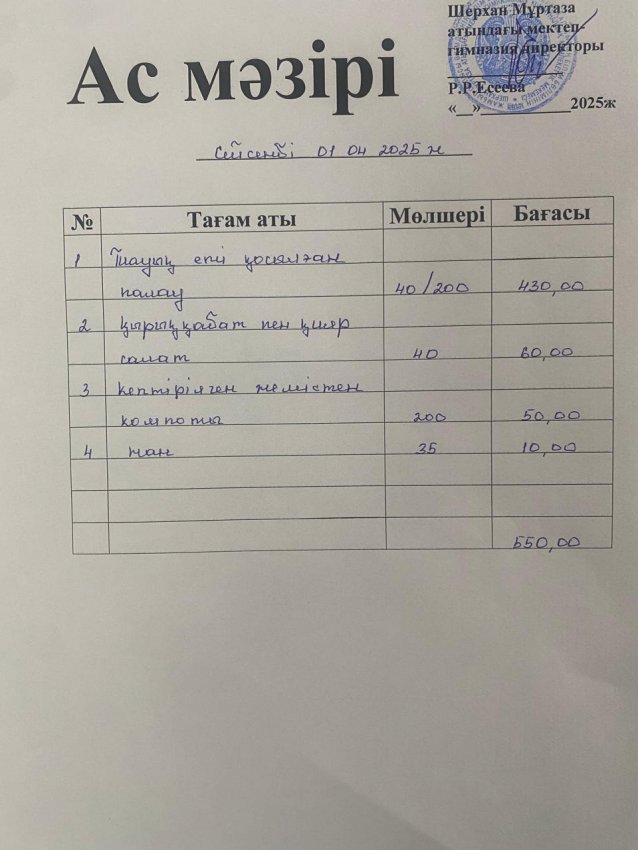 Шерхан Мұртаза
атындағы мектеп-
гимназия директоры
Р.Р.Есеева
«__»____________2025ж
Ас мәзірі
Сейсенбі 01 04 2025 ж
№ Тағам аты Мөлшері Бағасы
1 Тауық еті қосылған
палау 40/200 430,00
2 қырыққабат пен қияр
салат 40 60,00
3 кептірілген жемістен
компоты 200 50,00
4 нан 35 10,00
550,00